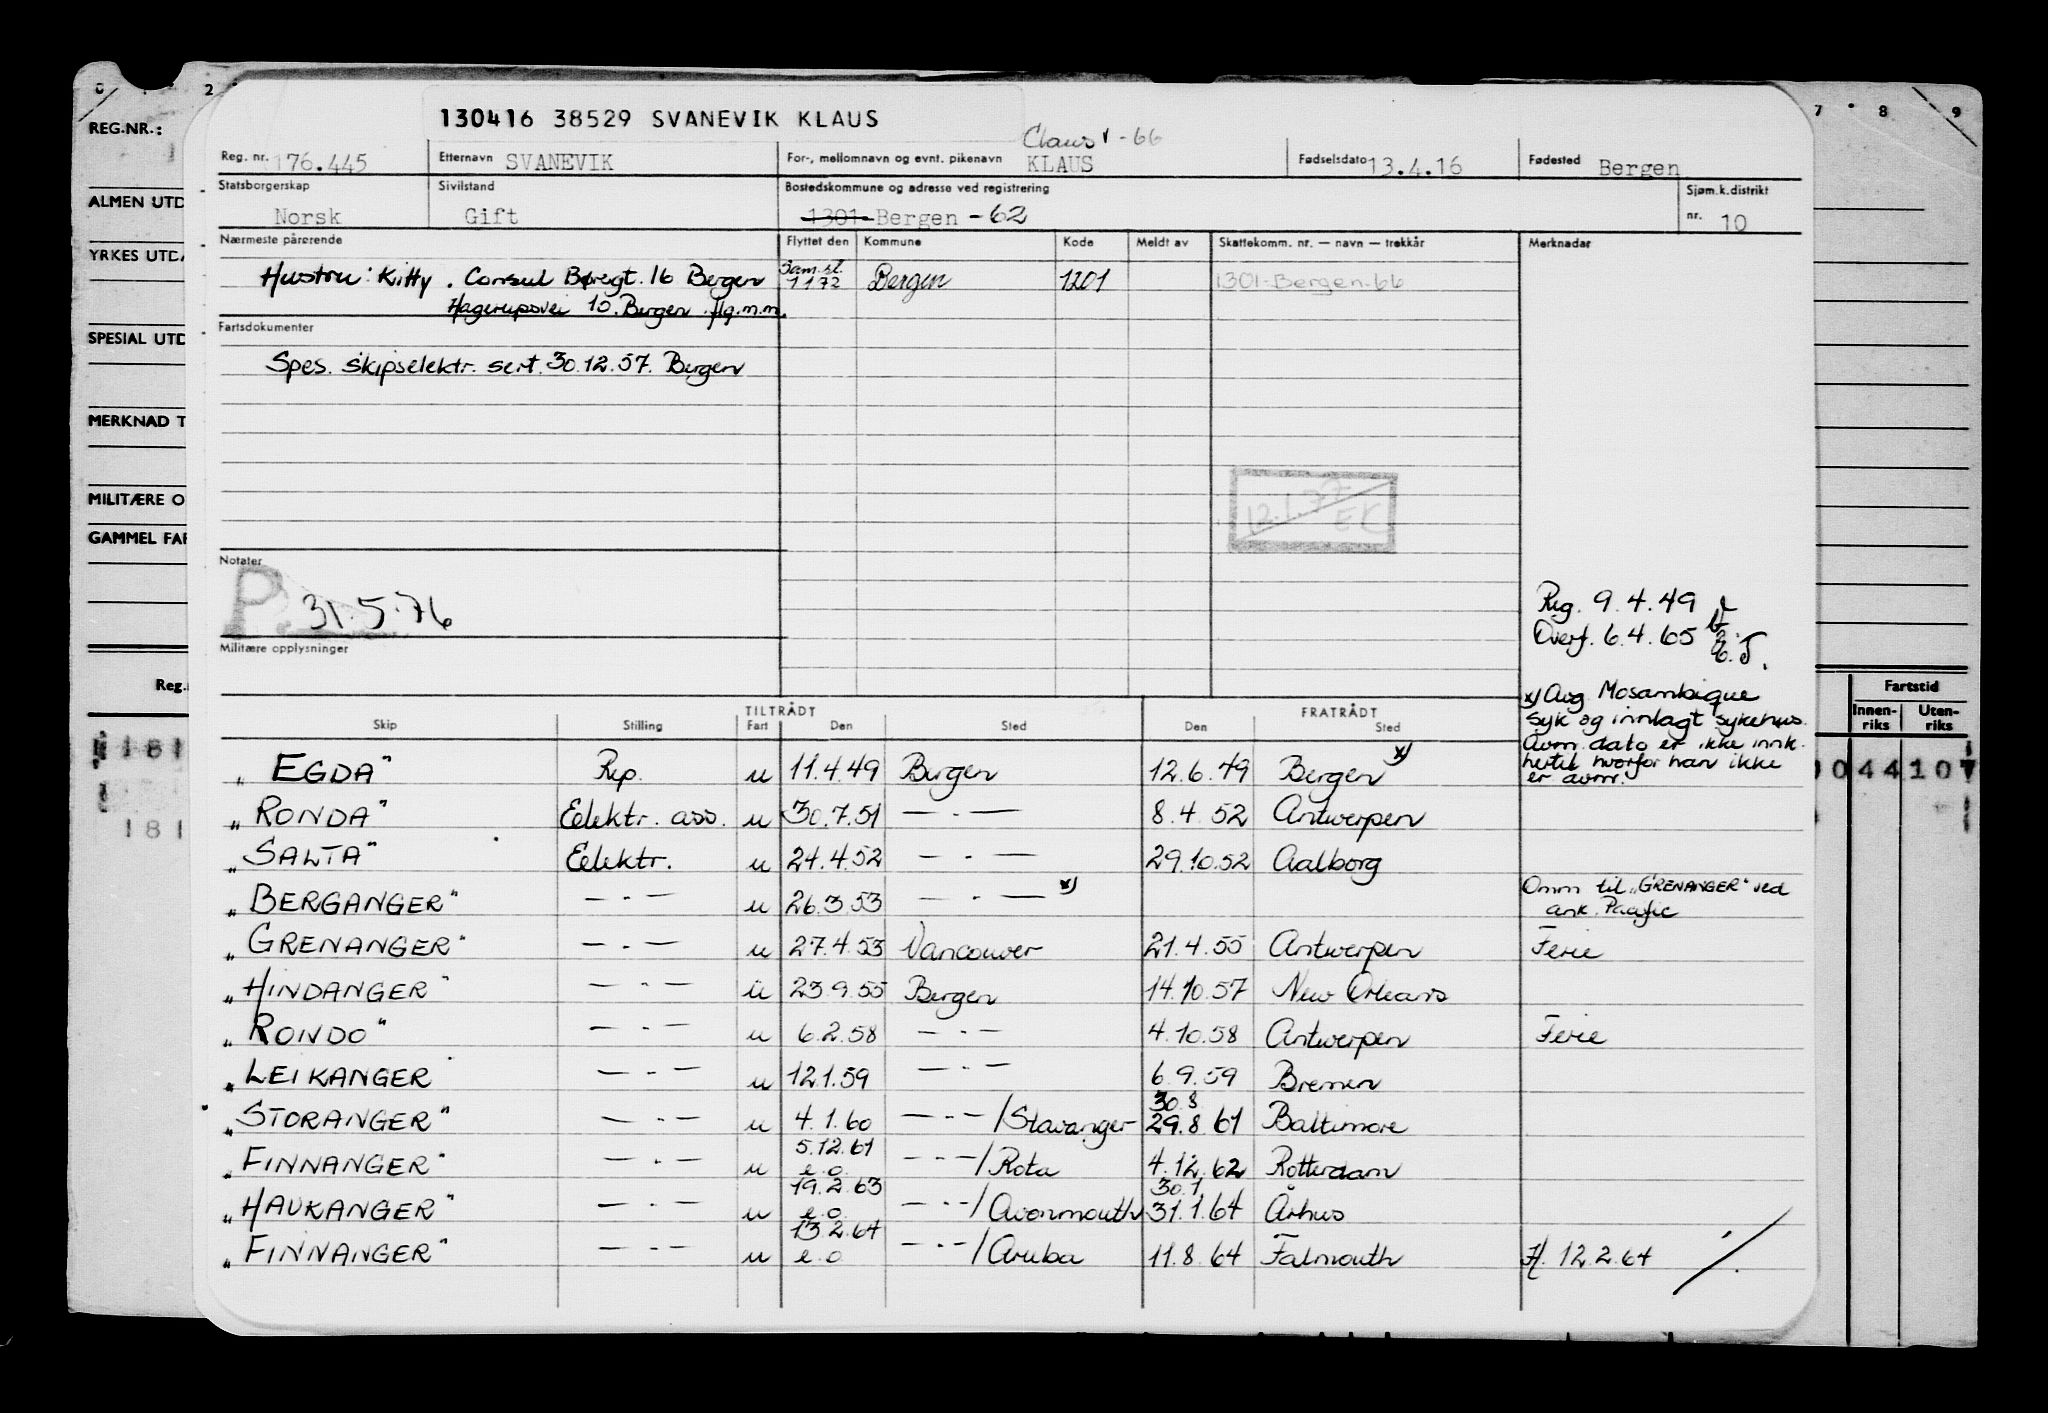 0 2 7 8 9
REG.NR.:
ALMEN UTD
YRKES UTDA
SPESIAL UTD
MERKNAD T
MILITÆRE O
GAMMEL FAR
Reg.
Fartstid
Innen-riks Uten-riks
181 0044107
181
130416 38529 SVANEVIK KLAUS
Claus -66
Reg. nr. 176.445 Etternavn SVANEVIK For-, mellomnavn og evnt. pikenavn KLAUS Fødselsdato 13.4.16 Fødested Bergen
Statsborgerskap Norsk Sivilstand Gift Bostedskommune og adresse ved registrering 1301-Bergen -62 Sjøm.k.distrikt nr. 10
Nærmeste pårørende Flyttet den Kommune Kode Meldt av Skattekomm. nr. — navn — trekkår Merknadar
Hustru: Kitty. Consul Børregt. 16 Bergen Sam.st. 1172 Bergen 1201 1301-Bergen-66
Hagerupsvei 10. Bergen flg.m.m.
Fartsdokumenter
Spes. skipselektr. sert. 30.12.57. Bergen
12.1.77 EK
Notater
P. 31.5.76
Militære opplysninger
Reg. 9.4.49
Overf. 6.4.65 E.J.
x) Avg Mosambique
syk og innlagt sykehus.
Avm. dato er ikke innk.
hertil hvorfor han ikke
er avm.
TILTRÅDT FRATRÅDT
Skip Stilling Fart Den Sted Den Sted
"EGDA" Rep. u 11.4.49 Bergen 12.6.49 Bergen x)
"RONDA" Elektr. ass. u 30.7.51 — . — 8.4.52 Antwerpen
"SALTA" Elektr. u 24.4.52 — . — 29.10.52 Aalborg
"BERGANGER" — . — u 26.3.53 — . — x) Omm til "GRENANGER" ved
ank. Pacific
"GRENANGER" — . — u 27.4.53 Vancouver 21.4.55 Antwerpen Ferie
"HINDANGER" — . — u 23.9.55 Bergen 14.10.57 New Orleans
"RONDO" — . — u 6.2.58 — . — 4.10.58 Antwerpen Ferie
"LEIKANGER — . — u 12.1.59 — . — 6.9.59 Bremen
"STORANGER" — . — u 4.1.60 — . — /Stavanger 30.8 29.8.61 Baltimore
"FINNANGER" — . — u 5.12.61 e.o. — . — /Rota 4.12.62 Rotterdam
"HAUKANGER" — . — u 19.2.63 e.o. — . — /Avonmouth 30.1 31.1.64 Århus
"FINNANGER" — . — u 13.2.64 e.o. — . — /Aruba 11.8.64 Falmouth Fl. 12.2.64 ./.